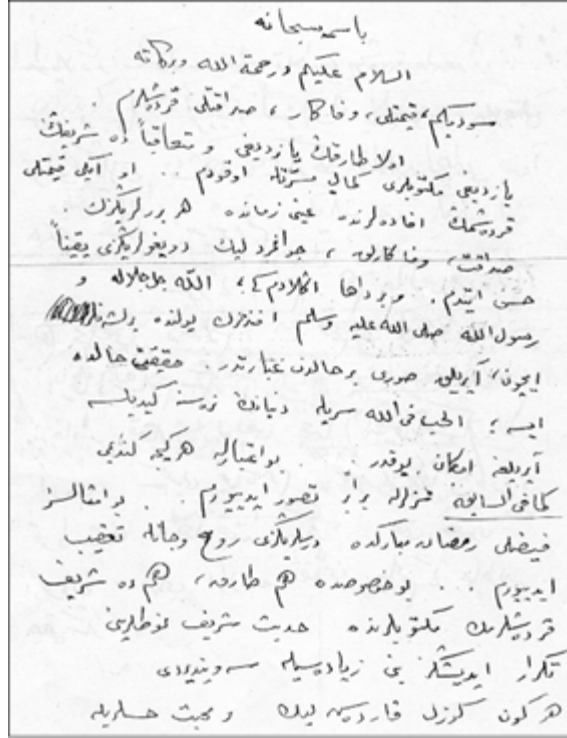 باسمه سبحانه
السلام عليكم ورحمة الله وبركاته
سوديكم، قيمتلى، وفاكار، صداقتلى قردشلرم
اولا طارقك يازديغى و متعاقباً ده شريفك
يازديغى مكتوبلرى كمال مسرتله اوقودم . او ايكى قيمتلى
قردشمك افاده لرنده عينى زمانده هر برلريكزك
صداقت، وفاكارلق، جوانمردلك دويغولريكزى يقيناً
حس ايتدم. و بر داها اكلادم كه؛ الله جل جلاله و
رسول الله صلى الله عليه وسلم افندمزك يولنده برلشنلر
ايچون، آيريلق صورى بر حالدن عبارتدر. حقيقى حالده
ايسه؛ الحب فى الله سريله دنيانك نره سنه كيديلسه
آيريلغه امكان يوقدر. بو اعتبارله هر كيجه كندمى
كما فى السابق سزلرله برابر تصور ايدييورم . بو امثالسز
فيضلى رمضان مباركده درسلريكزى روح و جانله تعقيب
ايدييورم .. بو خصوصده هم طارقك، هم ده شريف
قردشلرمك مكتوبلرنده حديث شريف
تكرار ايديشكز بنى زياده سيله سوينديردى
هر كون كوزل قاردشلك و محبت حسلريله